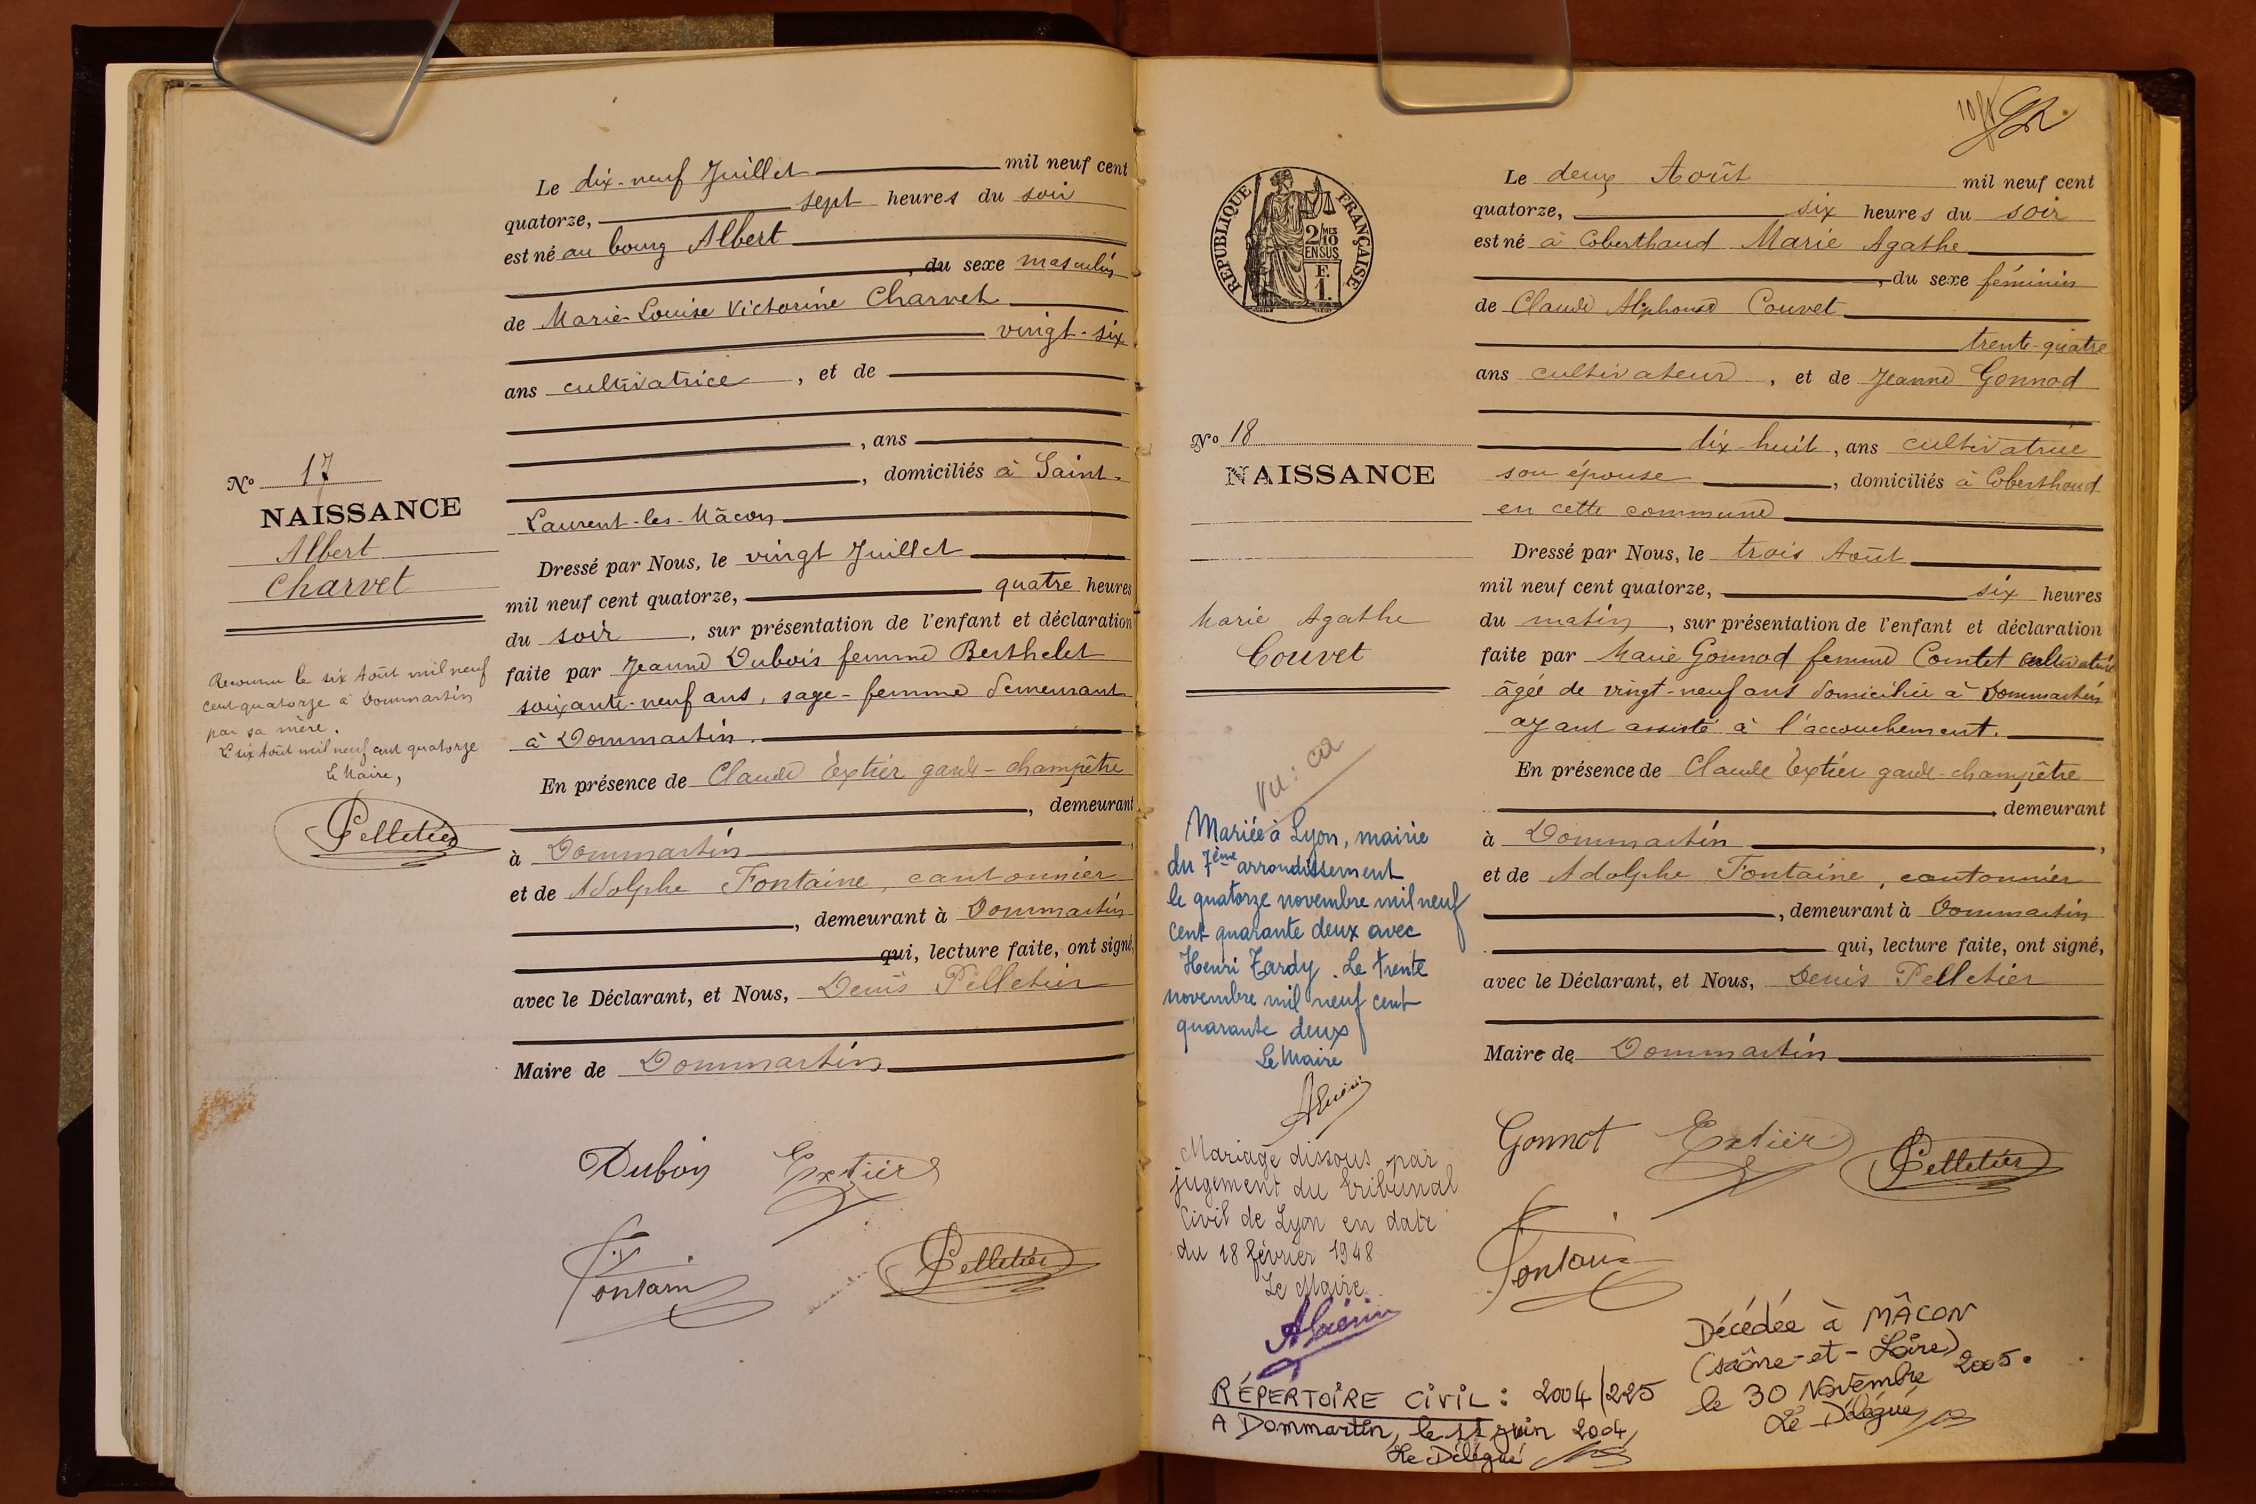 Le dix-neuf Juillet mil neuf cent
quatorze, sept heures du soir
est né au bourg Albert
, du sexe masculin
de Marie-Louise Victorine Charvet
vingt-six
ans cultivatrice , et de
, ans
, domiciliés à Saint-
Laurent-les-Mâcon
Dressé par Nous, le vingt Juillet
mil neuf cent quatorze, quatre heures
du soir , sur présentation de l'enfant et déclaration
faite par Jeanne Dubois femme Berthelet
soixante-neuf ans, sage-femme demeurant
à Dommartin.
En présence de Claude Extier garde-champêtre
, demeurant
à Dommartin ,
et de Adolphe Fontaine, cantonnier
, demeurant à Dommartin
qui, lecture faite, ont signé,
avec le Déclarant, et Nous, Denis Pelletier
Maire de Dommartin
Dubois Extier
Fontaine Pelletier
No 17
NAISSANCE
Albert
Charvet
Reconnu le six Août mil neuf
cent quatorze à Dommartin
par sa mère.
Le six Août mil neuf cent quatorze
Le Maire,
Pelletier
RÉPUBLIQUE FRANÇAISE
2/10 MES
EN SUS
F.
1.
No 18
NAISSANCE
Marie Agathe
Couvet
Le deux Août mil neuf cent
quatorze, six heures du soir
est né à Coberthoud Marie Agathe
, du sexe féminin
de Claude Alphonse Couvet
trente-quatre
ans cultivateur , et de Jeanne Gonnod
dix-huit , ans cultivatrice
son épouse , domiciliés à Coberthoud
en cette commune
Dressé par Nous, le trois Août
mil neuf cent quatorze, six heures
du matin , sur présentation de l'enfant et déclaration
faite par Marie Gonnod femme Comtet cultivatrice
âgée de vingt-neuf ans domiciliée à Dommartin
ayant assisté à l'accouchement.
En présence de Claude Extier garde-champêtre
, demeurant
à Dommartin ,
et de Adolphe Fontaine, cantonnier
, demeurant à Dommartin
qui, lecture faite, ont signé,
avec le Déclarant, et Nous, Denis Pelletier
Maire de Dommartin
Gonnot Extier Pelletier
Fontaine
Mariée à Lyon, mairie
du 7ème arrondissement
le quatorze novembre mil neuf
cent quarante deux avec
Henri Tardy. Le trente
novembre mil neuf cent
quarante deux
Le Maire
Mariage dissous par
jugement du tribunal
Civil de Lyon en date
du 18 février 1948
Le Maire
RÉPERTOIRE CIVIL : 2004/225
A Dommartin, le 11 juin 2004
Le Délégué
Décédée à MÂCON
(Saône-et-Loire)
le 30 Novembre 2005.
Le Délégué